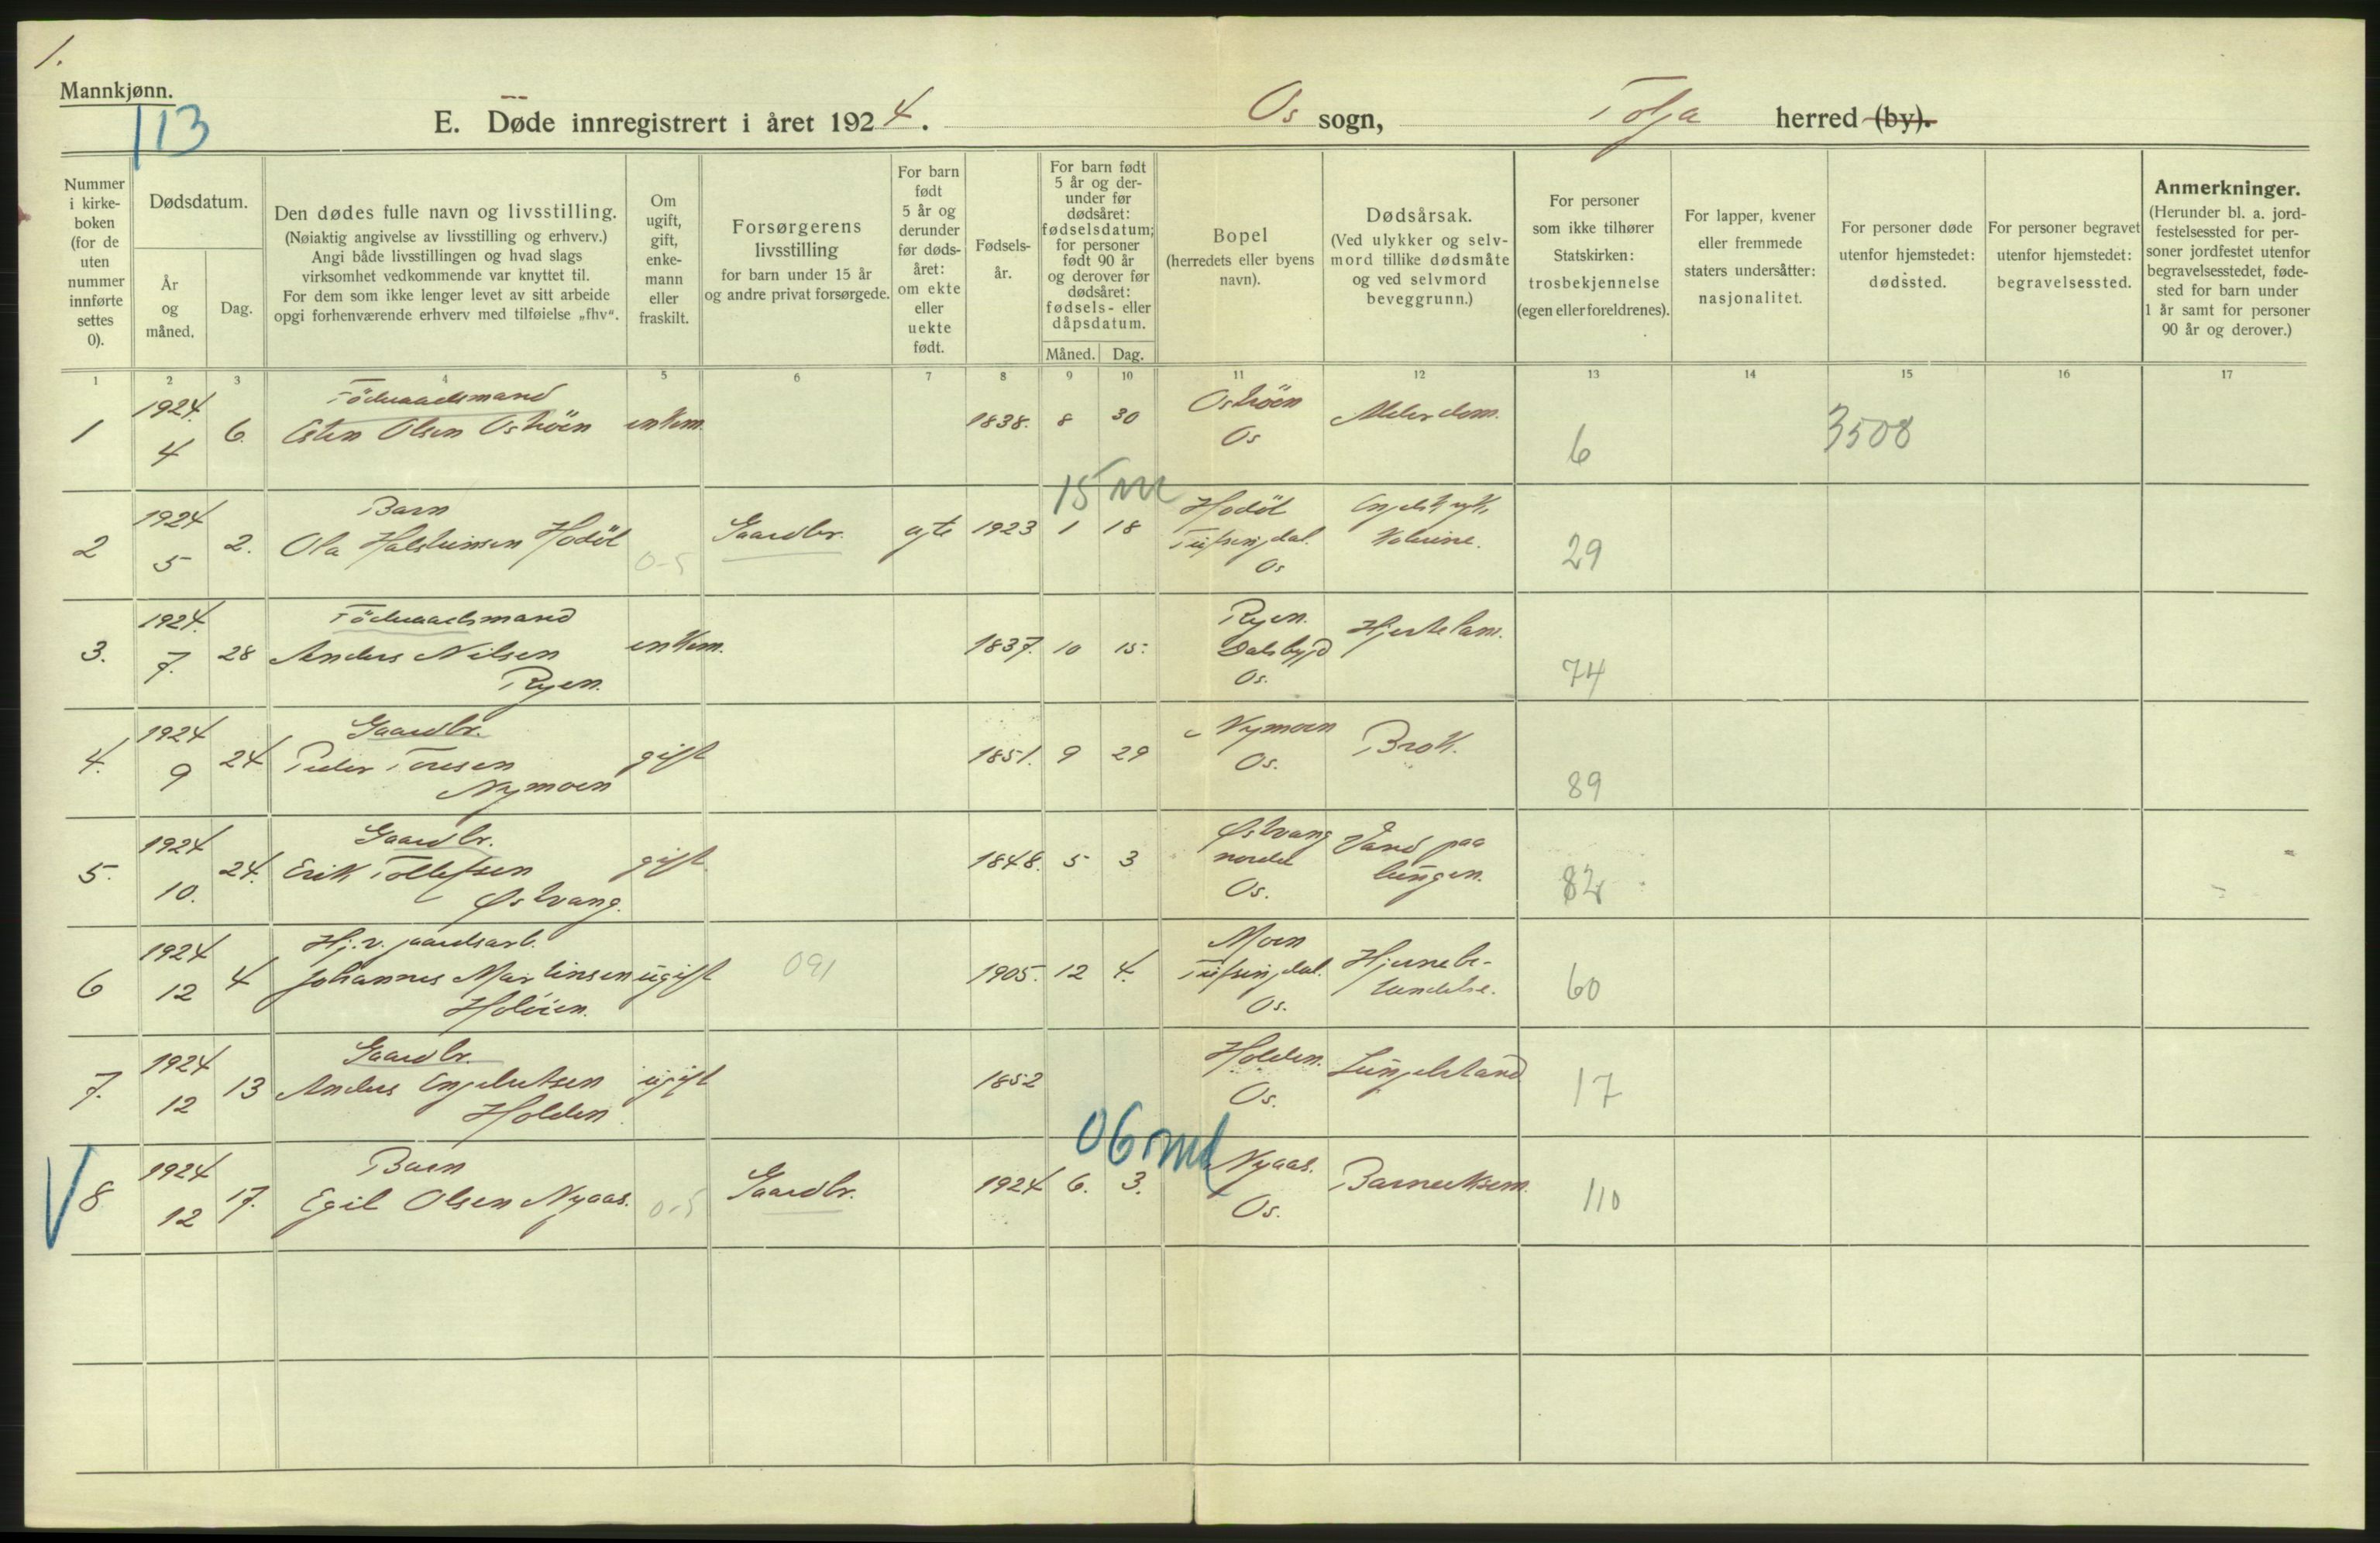 1.
Mannkjønn.
113
E. Døde innregistrert i året 1924. Os sogn, Tolga herred (by).
Nummer i kirke- boken (for de uten nummer innførte settes 0).
Dødsdatum.
År og måned.
Dag.
Den dødes fulle navn og livsstilling.
(Nøiaktig angivelse av livsstilling og erhverv.)
Angi både livsstillingen og hvad slags
virksomhet vedkommende var knyttet til.
For dem som ikke lenger levet av sitt arbeide
opgi forhenværende erhverv med tilføielse „fhv“.
Om ugift, gift, enke- mann eller fraskilt.
Forsørgerens
livsstilling
for barn under 15 år
og andre privat forsørgede.
For barn født 5 år og derunder før døds- året: om ekte eller uekte født.
Fødsels- år.
For barn født 5 år og der- under før dødsåret: fødselsdatum; for personer født 90 år og derover før dødsåret: fødsels- eller dåpsdatum.
Måned. Dag.
Bopel
(herredets eller byens
navn).
Dødsårsak.
(Ved ulykker og selv-
mord tillike dødsmåte
og ved selvmord
beveggrunn.)
For personer
som ikke tilhører
Statskirken:
trosbekjennelse
(egen eller foreldrenes).
For lapper, kvener
eller fremmede
staters undersåtter:
nasjonalitet.
For personer døde
utenfor hjemstedet:
dødssted.
For personer begravet
utenfor hjemstedet:
begravelsessted.
Anmerkninger.
(Herunder bl. a. jord-
festelsessted for per-
soner jordfestet utenfor
begravelsesstedet, føde-
sted for barn under
1 år samt for personer
90 år og derover.)
1 2 3 4 5 6 7 8 9 10 11 12 13 14 15 16 17
1 1924. 4 6. Föderaadsmand
Osten Olsen Oshöen enkem. 1838. 8 30 Oshöen
Os Alderdom. 6 3508
15 m
2 1924 5 2. Barn
Ola Halsteinsen Hodöl 0-5 Gaardbr. egte 1923 1 18 Hodöl
Tufsingdal.
Os Engelsk syke 29
3. 1924. 7. 28 Föderaadsmand
Anders Nilsen
Ryen. enkem. 1837. 10 15. Ryen.
Dalsbygd
Os. Hjertelam. 74
4. 1924 9 24 Gaardbr.
Peder Toresen
Nymoen gift 1851. 9 29 Nymoen
Os. Brok. 89
5. 1924 10. 24. Gaardbr.
Erik Tollefsen
Østvang. gift 1848. 5 3 Østvang
nordel
Os. Vand paa
lungen. 82
6 1924 12 4 Hj. v. gaardsarb.
Johannes Martinsen
Holöien. ugift 091 1905. 12 4. Moen
Tufsingdal.
Os. Hjernebe-
tændelse. 60
7. 1924 12 13 Gaardbr.
Anders Engebretsen
Holden. ugift 1852 Holden.
Os. Lungebetænd 17
06 md
8 1924 12 17. Barn
Egil Olsen Nyaas. 0-5 Gaardbr. 1924 6. 3. Nyaas.
Os. Barneeksem. 110